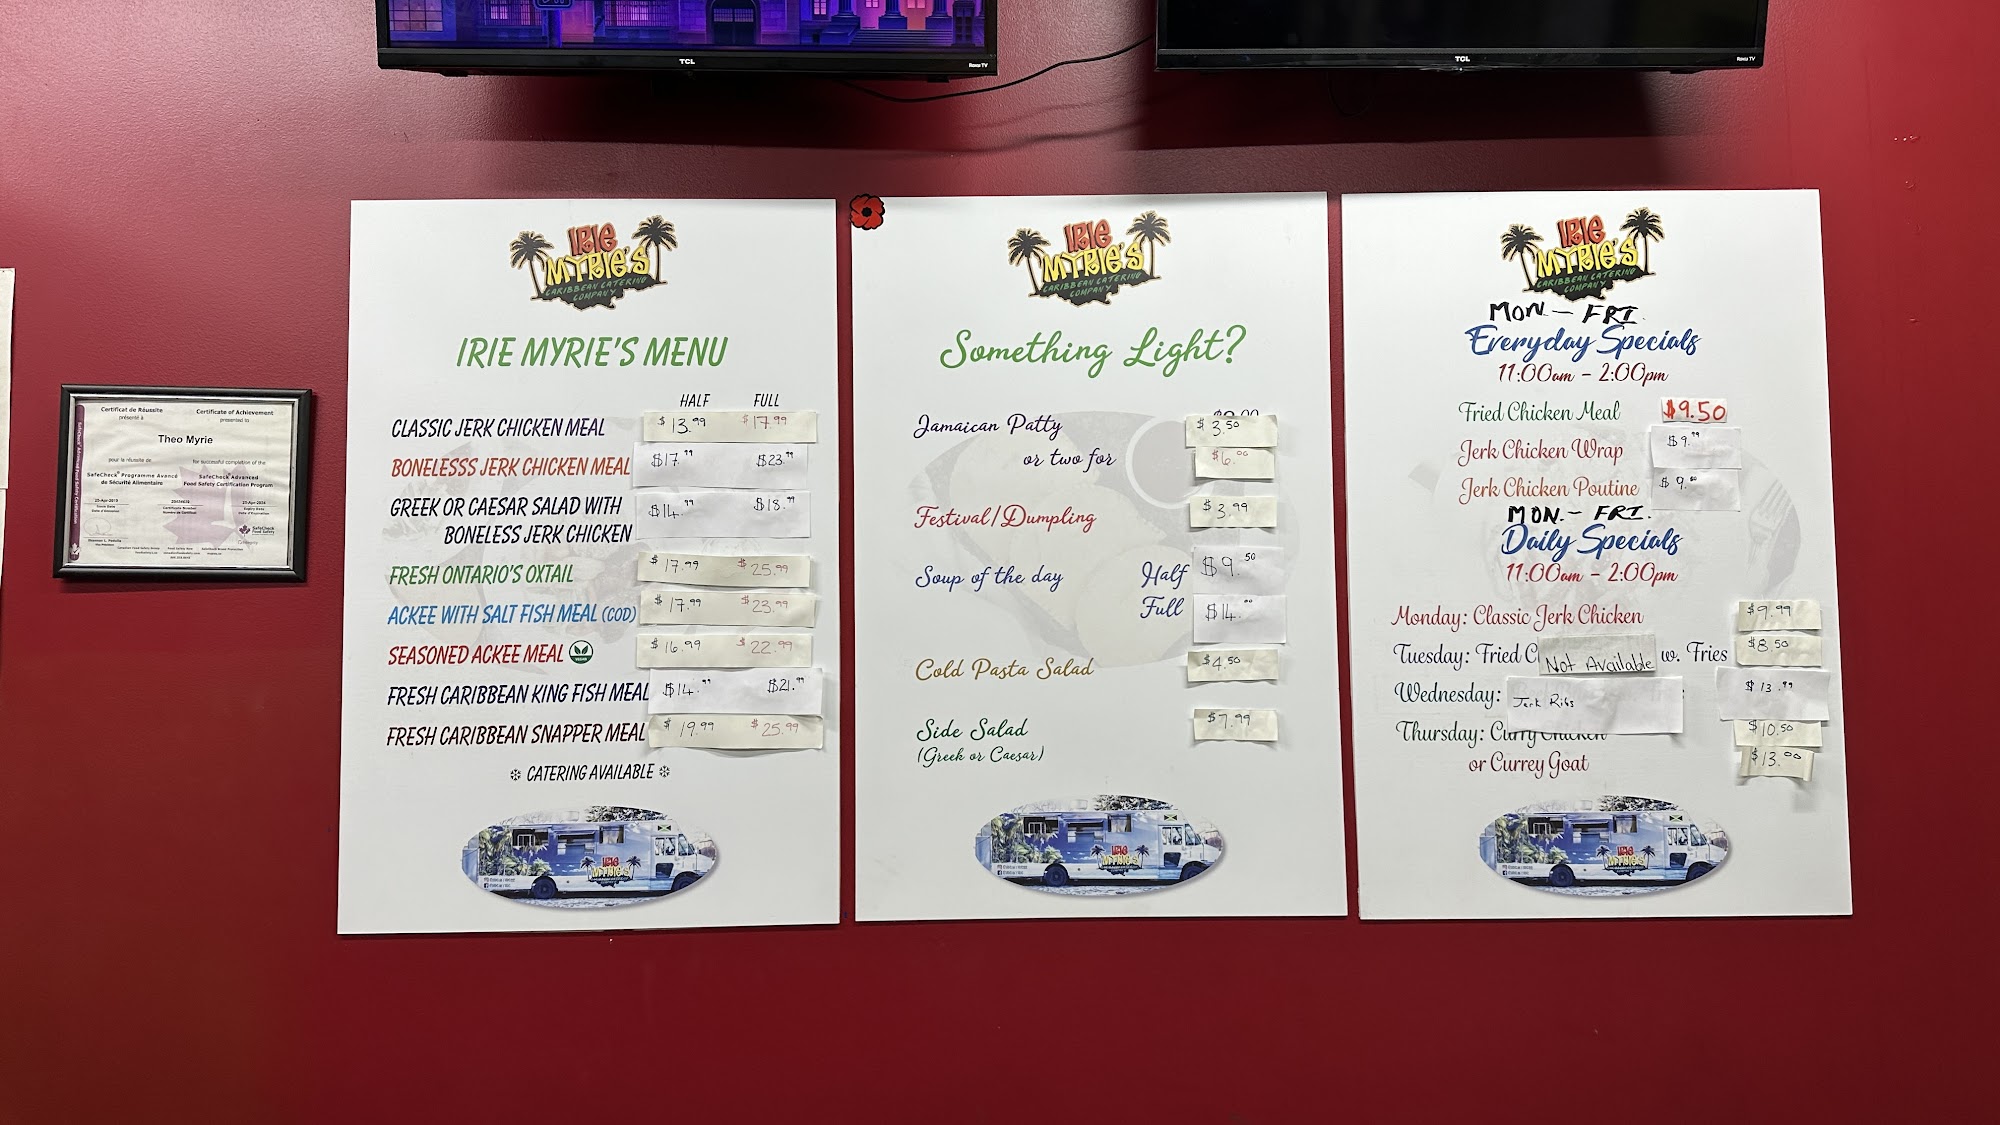 TCL
Roku TV
TCL
Roku TV
Certificat de Réussite
présenté à
Certificate of Achievement
presented to
Theo Myrie
pour la réussite de
for successful completion of the
SafeCheck® Programme Avancé
de Sécurité Alimentaire
SafeCheck® Advanced
Food Safety Certification Program
SafeCheck
Food Safety
IRIE
MYRIE'S
CARIBBEAN CATERING
COMPANY
IRIE MYRIE'S MENU
HALF FULL
CLASSIC JERK CHICKEN MEAL $13.99 $17.99
BONELESSS JERK CHICKEN MEAL $17.99 $23.99
GREEK OR CAESAR SALAD WITH
BONELESS JERK CHICKEN $14.99 $18.99
FRESH ONTARIO'S OXTAIL $17.99 $25.99
ACKEE WITH SALT FISH MEAL (COD) $17.99 $23.99
SEASONED ACKEE MEAL VEGAN $16.99 $22.99
FRESH CARIBBEAN KING FISH MEAL $14.99 $21.99
FRESH CARIBBEAN SNAPPER MEAL $19.99 $25.99
CATERING AVAILABLE
IRIE
MYRIE'S
IRIE
MYRIE'S
CARIBBEAN CATERING
COMPANY
Something Light?
Jamaican Patty $3.50
or two for $6.00
Festival/Dumpling $3.99
Soup of the day Half $9.50
Full $14.00
Cold Pasta Salad $4.50
Side Salad $7.99
(Greek or Caesar)
IRIE
MYRIE'S
IRIE
MYRIE'S
CARIBBEAN CATERING
COMPANY
MON. - FRI.
Everyday Specials
11:00am - 2:00pm
Fried Chicken Meal $9.50
Jerk Chicken Wrap $9.99
Jerk Chicken Poutine $9.00
MON. - FRI.
Daily Specials
11:00am - 2:00pm
Monday: Classic Jerk Chicken $9.99
Tuesday: Fried C Not Available w. Fries $8.50
Wednesday: Jerk Ribs $13.99
Thursday: Curry Chicken $10.50
or Currey Goat $13.00
IRIE
MYRIE'S